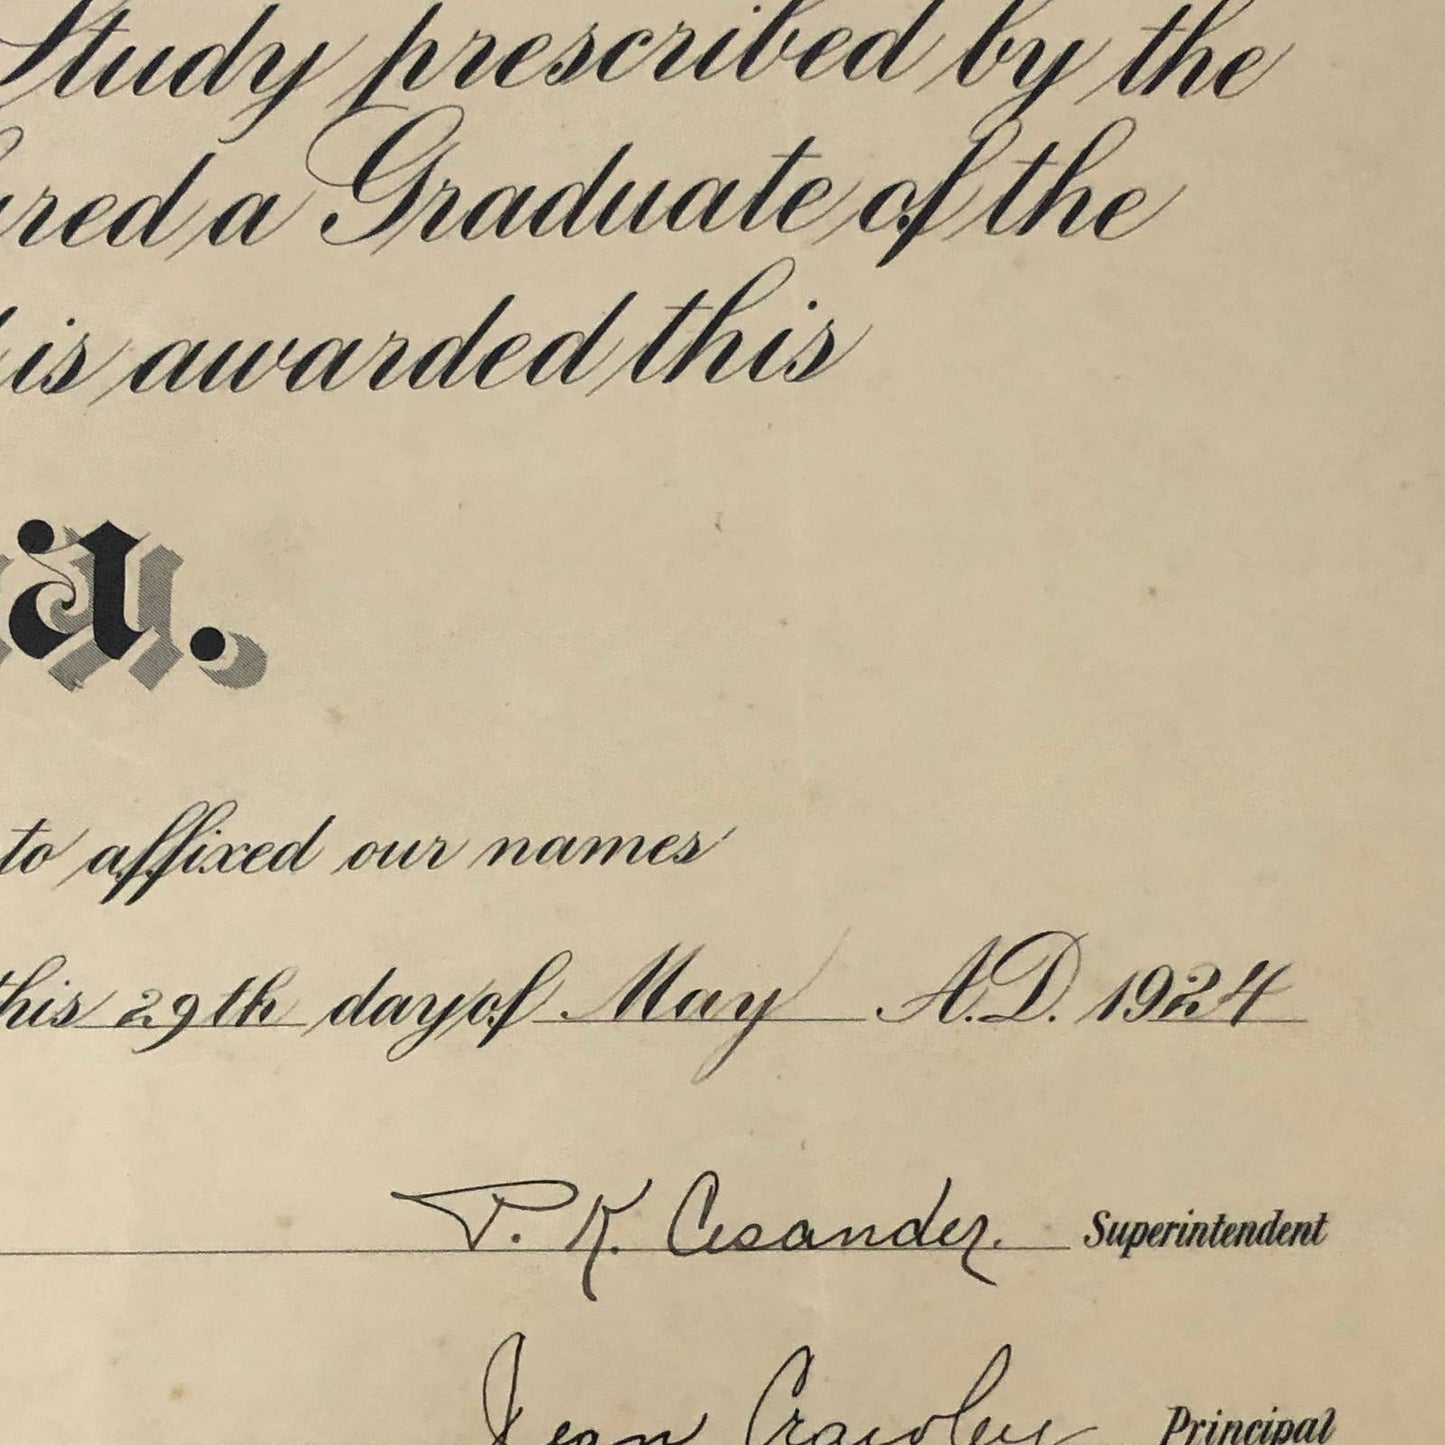 Study prescribed by the
ared a Graduate of the
is awarded this
a.
to affixed our names
this 29th day of May A.D. 1924
P. K. Cesander. Superintendent
Jean Crawley Principal